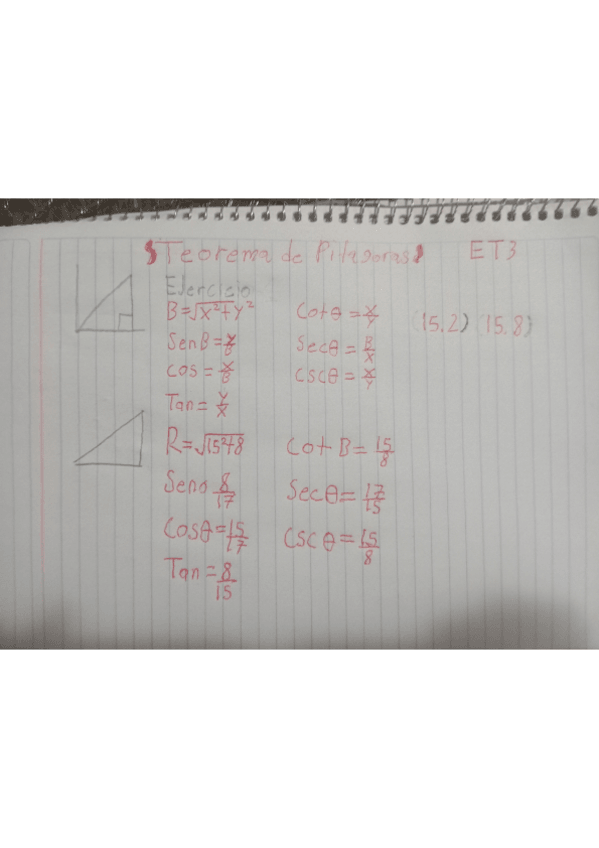 Teorema de Pitagoras ET3
Ejercicio
B=√x²+y² Cotθ=x/y (15.2) (15.8)
SenB=x/B Secθ=B/x
cos=x/B cscθ=x/y
Tan=y/x
R=√15²+8 Cot B=15/8
Senθ 8/17 Secθ=17/15
Cosθ=15/17 cscθ=15/8
Tan=8/15